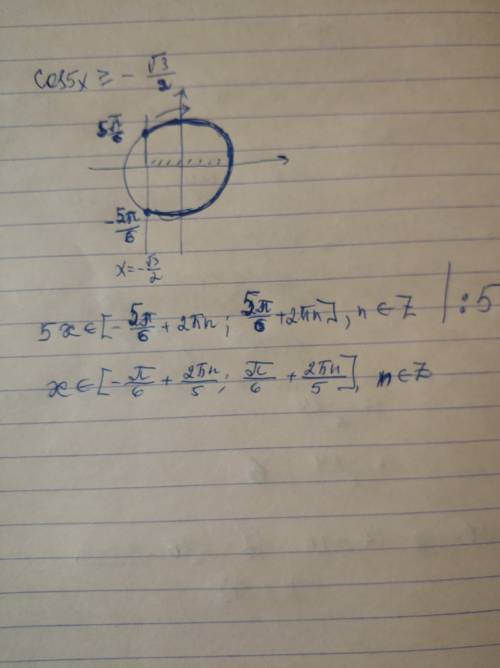 cos5x ≥ - √3/2
5π/6
-5π/6
x=-√3/2
5x∈[-5π/6+2πn; 5π/6+2πn], n∈Z |:5
x∈[-π/6+2πn/5; π/6+2πn/5], n∈Z